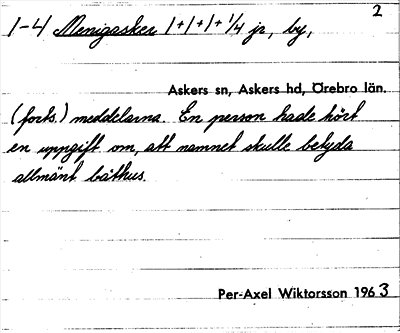 2
1-4 Menigasker 1+1+1+1/4 jr, by,
Askers sn, Askers hd, Örebro län.
(forts.) meddelarna. En person hade hört
en uppgift om, att namnet skulle betyda
allmänt båthus.
Per-Axel Wiktorsson 1963